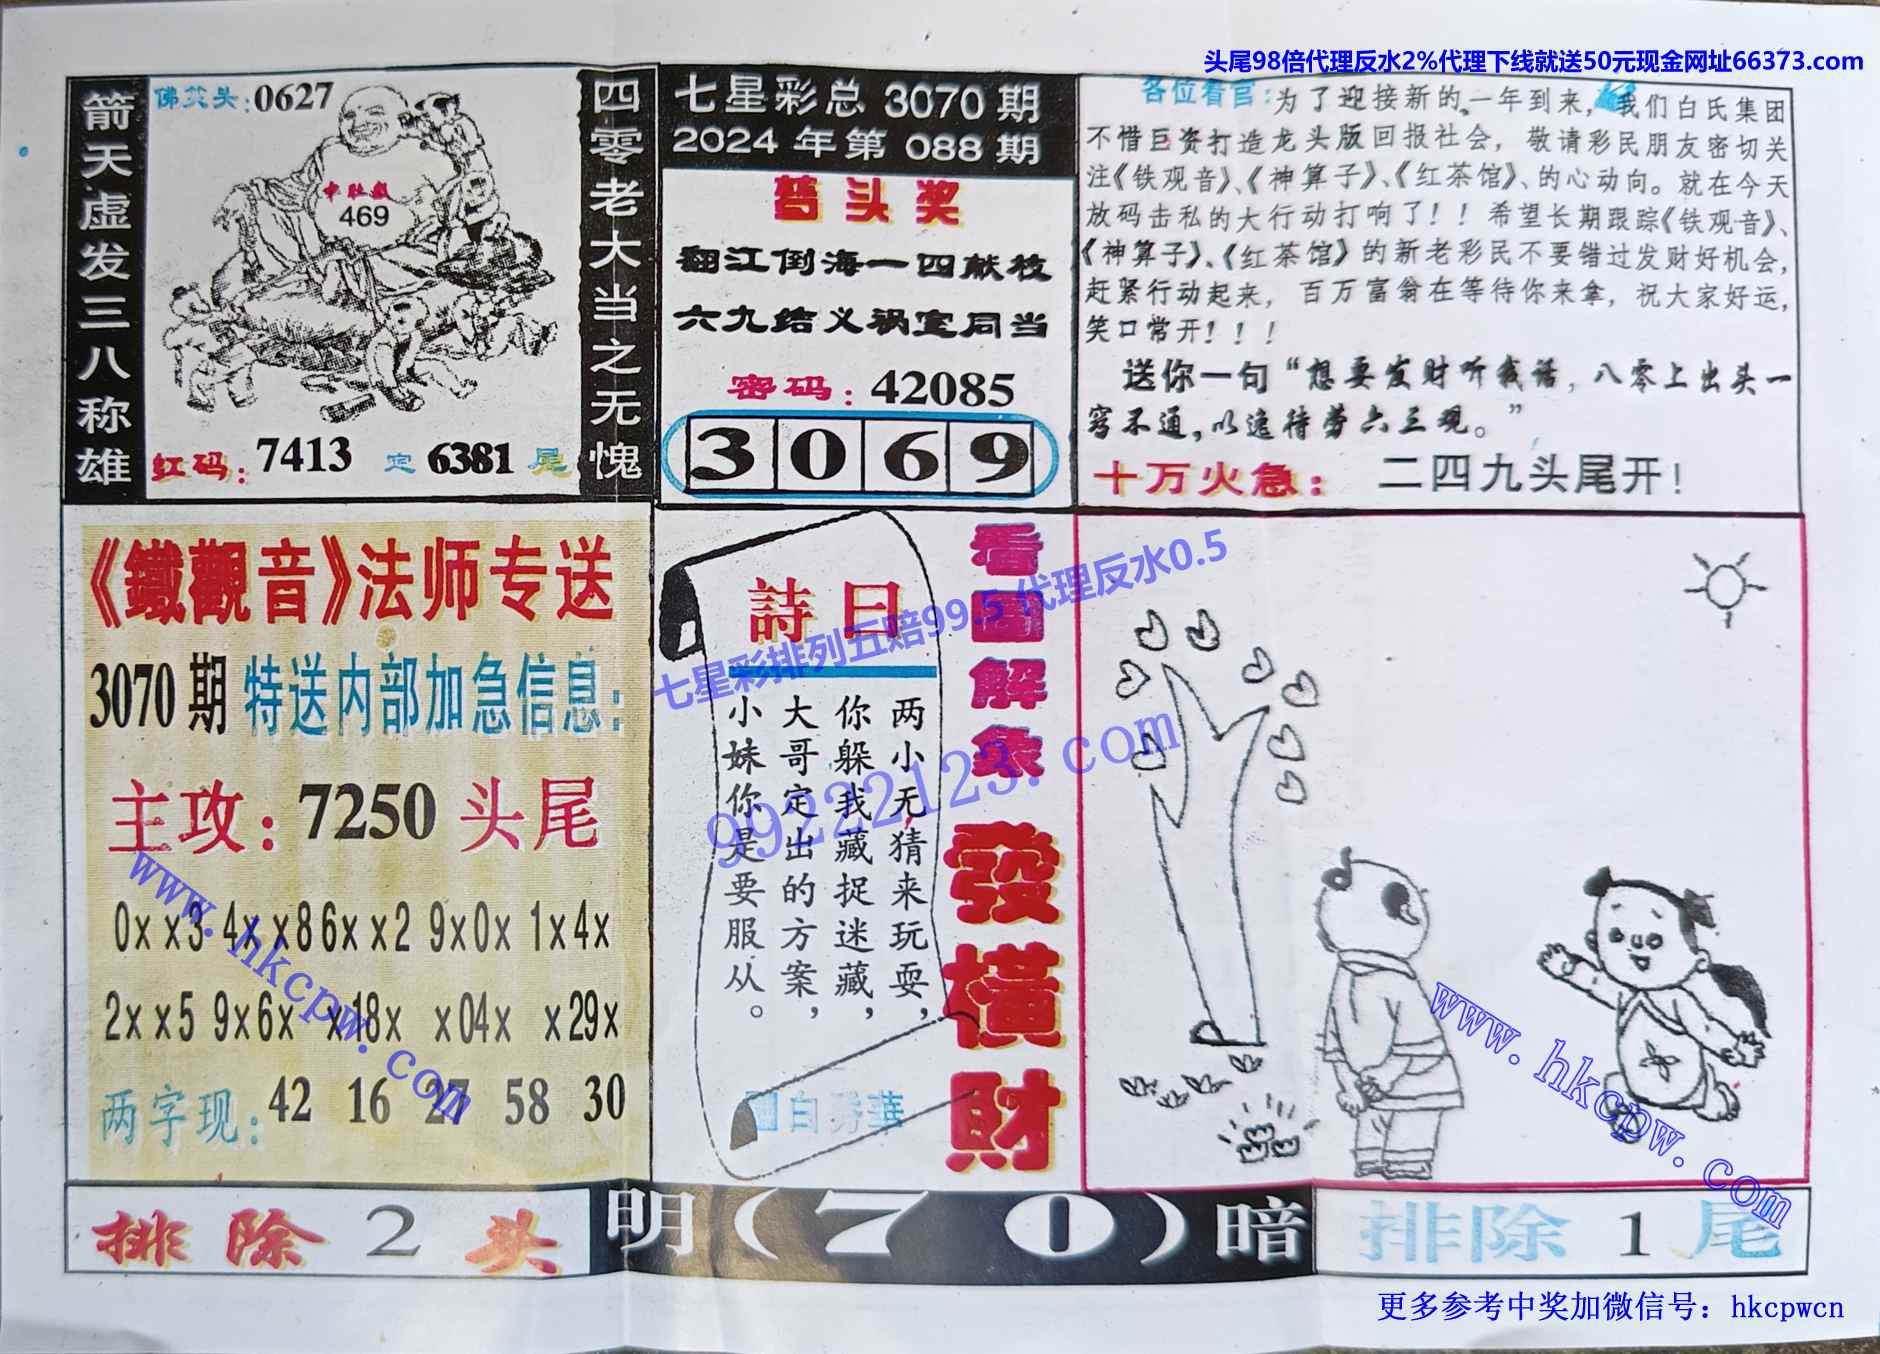 头尾98倍代理反水2%代理下线就送50元现金网址66373.com
箭天虚发三八称雄
佛笑头:0627
中肚数
469
红码:7413 定6381尾
四零老大当之无愧
七星彩总3070期
2024年第088期
头奖
翻江倒海一四献枝
六九结义祸宜同当
密码:42085
3069
各位看官:为了迎接新的一年到来,我们白氏集团
不惜巨资打造龙头版回报社会,敬请彩民朋友密切关
注《铁观音》、《神算子》、《红茶馆》、的心动向。就在今天
放码击私的大行动打响了!!希望长期跟踪《铁观音》、
《神算子》、《红茶馆》的新老彩民不要错过发财好机会,
赶紧行动起来,百万富翁在等待你来拿,祝大家好运,
笑口常开!!!
送你一句“想要发财听我话,八零上出头一
穷不通,以逸待劳六三现。”
十万火急:二四九头尾开!
《鐵觀音》法师专送
3070期特送内部加急信息:
主攻:7250头尾
0xx3 4xx8 6xx2 9x0x 1x4x
2xx5 9x6x x18x x04x x29x
两字现:42 16 27 58 30
詩曰
两小无猜来玩耍,
你躲我藏捉迷藏,
大哥定出的方案,
小妹你是要服从。
白秀華
看图解象
發橫財
七星彩排列五赔99.5 代理反水0.5
99222123.com
www.hkcpw.com
www.hkcpw.com
排除2头
明(70)暗
排除1尾
更多参考中奖加微信号:hkcpwcn